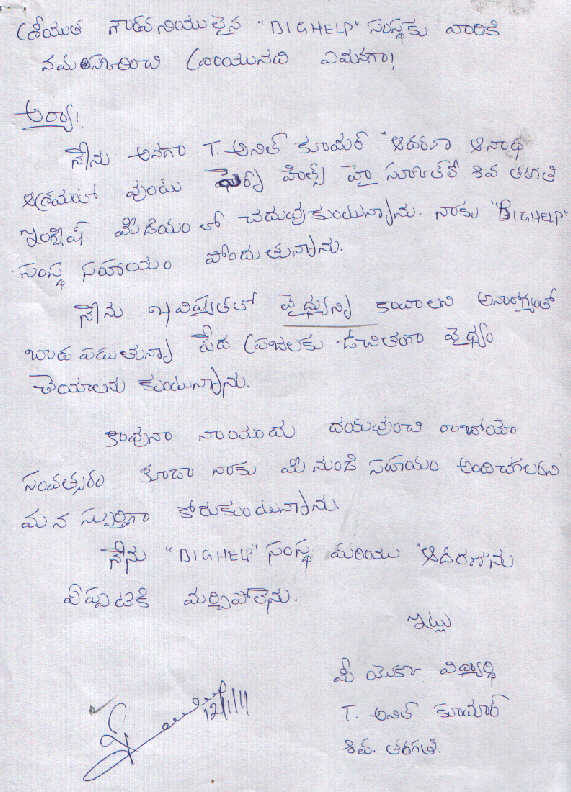 శ్రీయుత గౌరవనీయులైన "BIGHELP" సంస్థకు వారికి
నమస్కరించి వ్రాయునది ఏమనగా!
ఆర్యా!
నేను అనగా T. అనిల్ కుమార్ "ఆదరణ అనాథ
ఆశ్రమంలో వుంటు హై స్కూల్‌లో తరగతి
ఇంగ్లిష్ మీడియం లో చదువుకుంటున్నాను. నాకు "BIGHELP"
సంస్థ సహాయం పొందుతున్నాను.
నేను భవిష్యతలో వైద్యున్ని కావాలని అనారోగ్యంతో
బాధ పడుతున్నా పేద ప్రజలకు ఉచితంగా వైద్యం
చేయాలను కుంటున్నాను.
కావునా నాయందు దయవుంచి రాబోయే
సంవత్సరం కూడా నాకు మీ నుండి సహాయం అందించగలరని
మన స్పూర్తిగా కోరుకుంటున్నాను.
నేను "BIGHELP" సంస్థ మరియు "ఆదరణ"ను
ఏప్పటికి మర్చిపోలేను.
ఇట్లు
మీ యొక్క విద్యార్థి
T. అనిల్ కుమార్
తరగతి
12/1/11